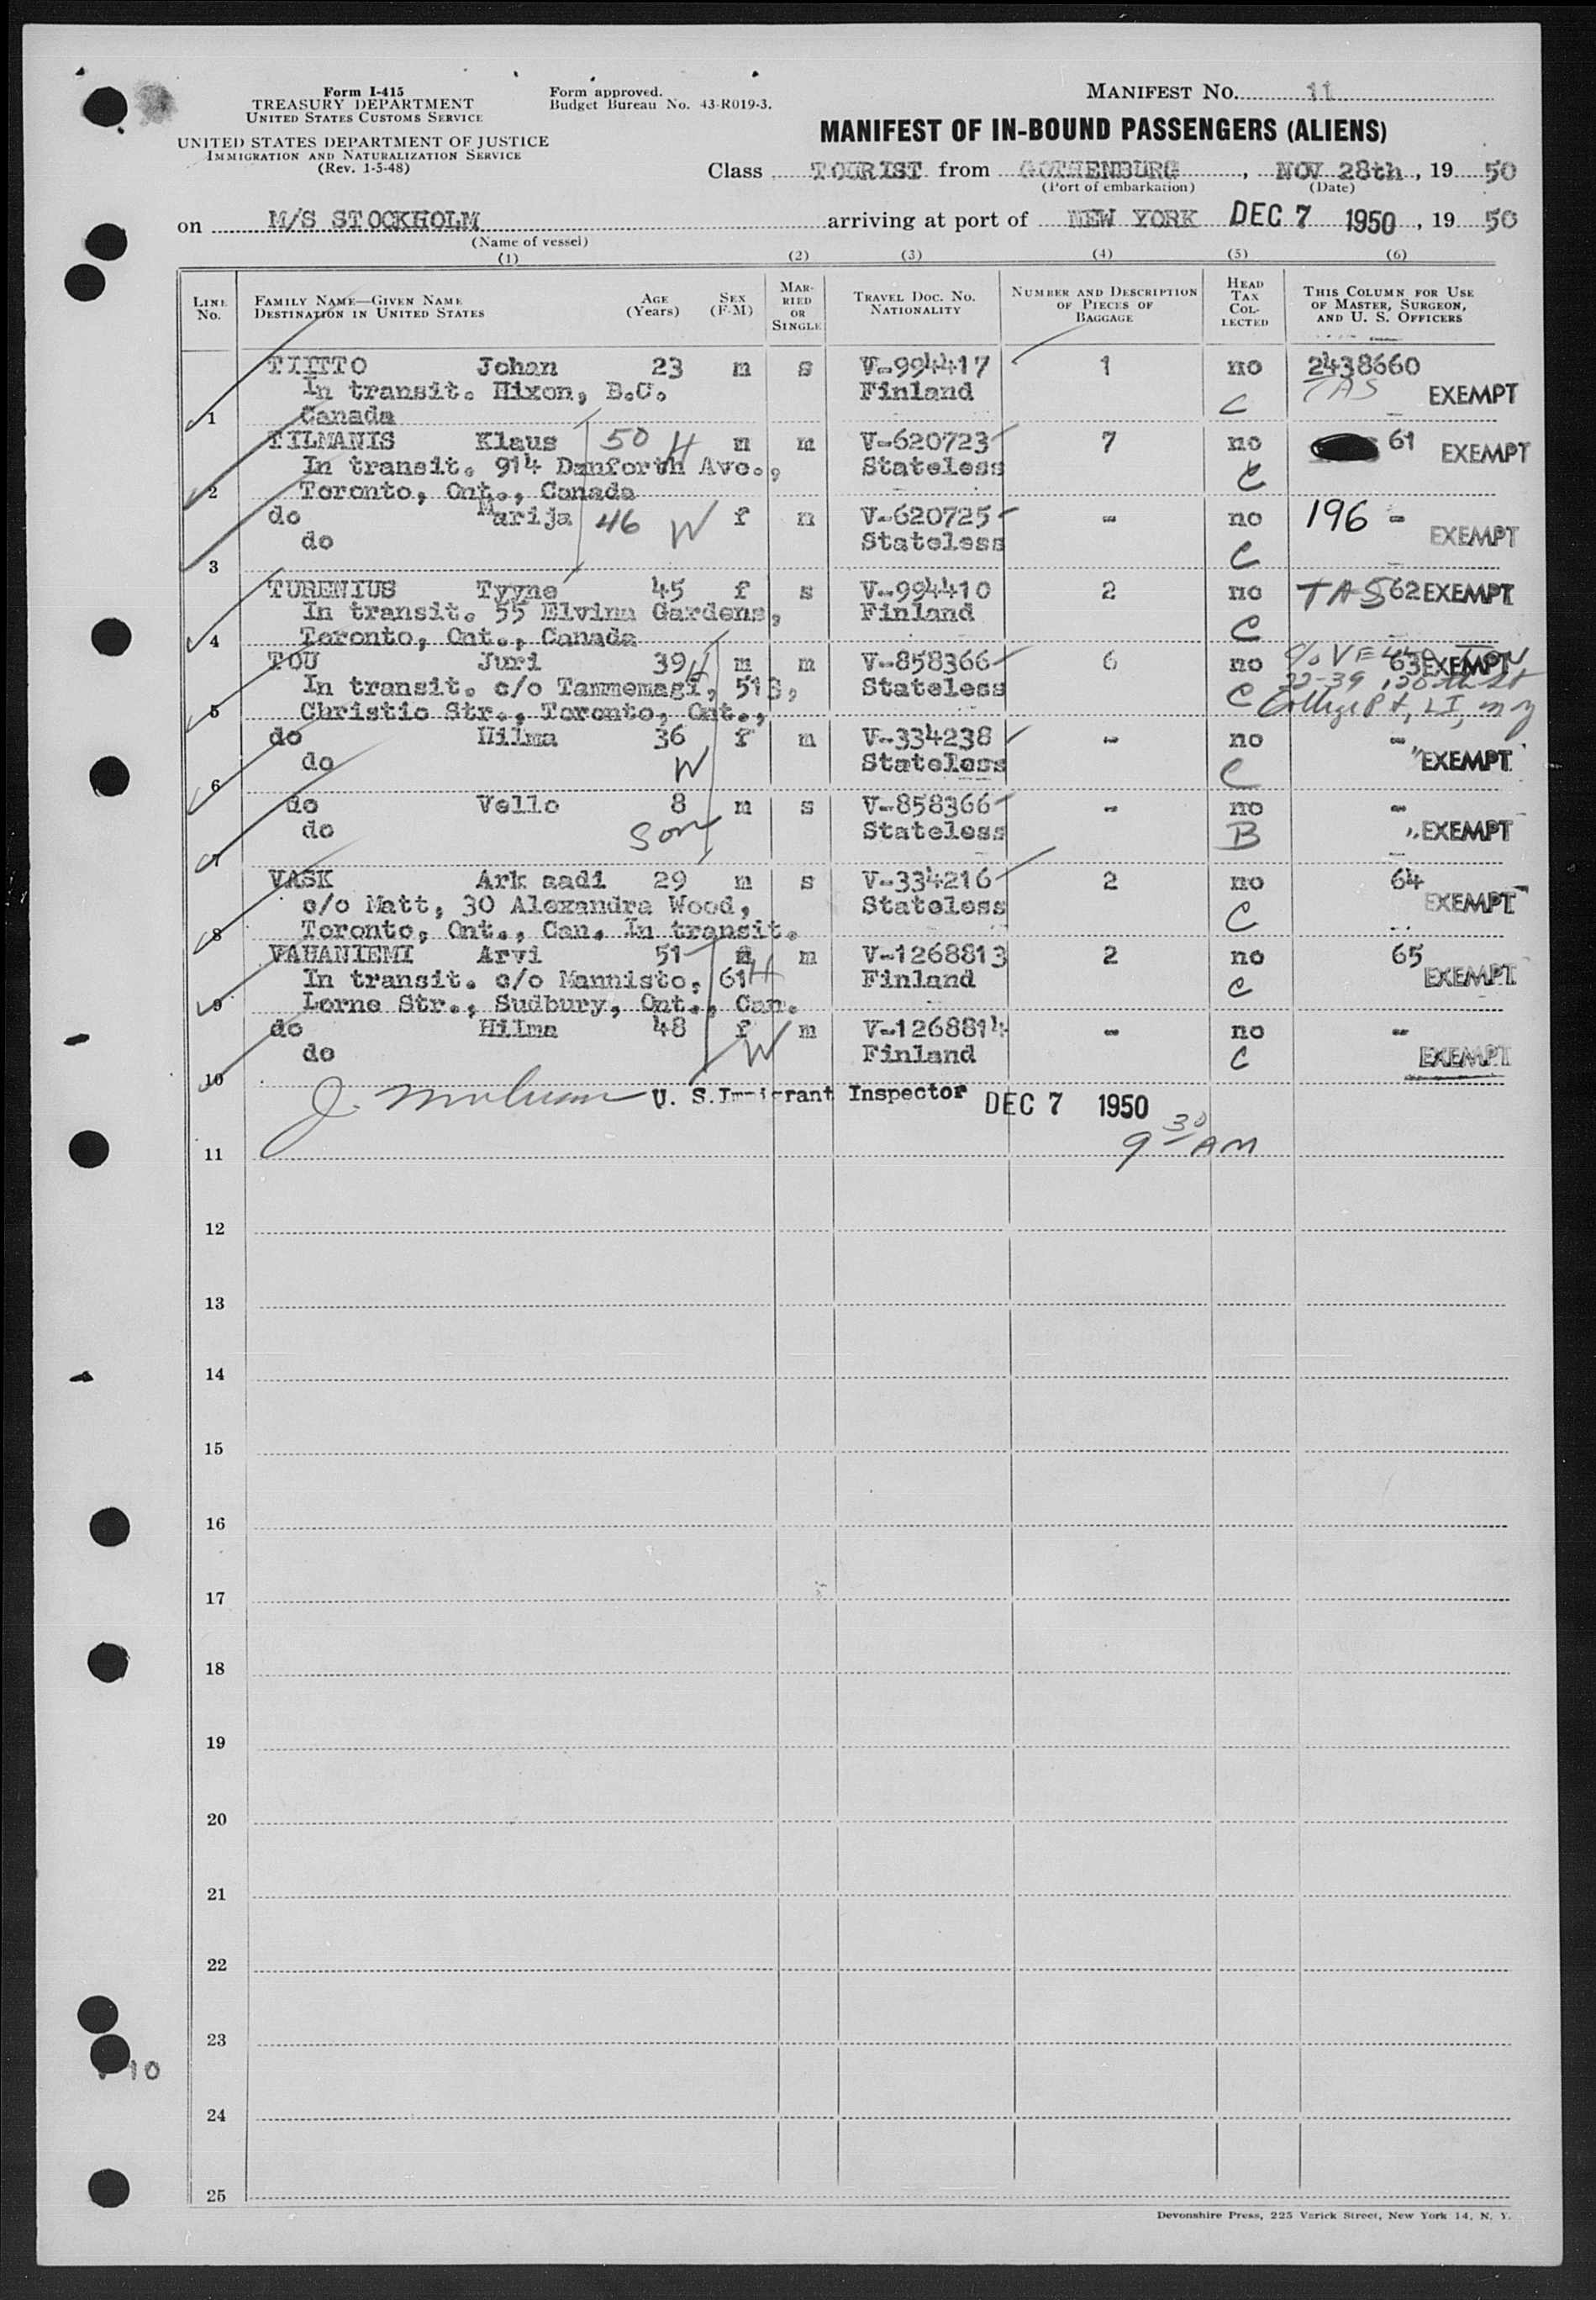 Form I-415
TREASURY DEPARTMENT
UNITED STATES CUSTOMS SERVICE
UNITED STATES DEPARTMENT OF JUSTICE
IMMIGRATION AND NATURALIZATION SERVICE
(Rev. 1-5-48)
Form approved.
Budget Bureau No. 43-R019-3.
MANIFEST NO. 11
MANIFEST OF IN-BOUND PASSENGERS (ALIENS)
Class TOURIST from GOTHENBURG, NOV 28th, 19 50
(Port of embarkation) (Date)
on M/S STOCKHOLM arriving at port of NEW YORK DEC 7 1950, 19 50
(Name of vessel)
(1) (2) (3) (4) (5) (6)
LINE NO. FAMILY NAME—GIVEN NAME DESTINATION IN UNITED STATES AGE (Years) SEX (F-M) MARRIED OR SINGLE TRAVEL DOC. NO. NATIONALITY NUMBER AND DESCRIPTION OF PIECES OF BAGGAGE HEAD TAX COLLECTED THIS COLUMN FOR USE OF MASTER, SURGEON, AND U. S. OFFICERS
TIITTO Johan 23 m s V-994417 1 no 2438660
In transit. Hixon, B.C. Finland C TAS EXEMPT
1 Canada
TILMANIS Klaus 50 H m m V-620723 7 no 61 EXEMPT
In transit. 914 Danforth Ave., Stateless C
2 Toronto, Ont., Canada
do Marija 46 W f m V-620725 - no 196 - EXEMPT
do Stateless C
3
TURENIUS Tyyne 45 f s V-994410 2 no TAS 62 EXEMPT
In transit. 55 Elvina Gardens, Finland C
4 Toronto, Ont., Canada
TOU Juri 39 H m m V-858366 6 no 63 EXEMPT c/o Tou
In transit. c/o Tammemagi, 513, Stateless C 22-39 130th St
5 Christie Str., Toronto, Ont., College Pt, LI, NY
do Hilma 36 f m V-334238 - no -
do W Stateless C " EXEMPT
6
do Vello 8 m s V-858366 - no -
do Son Stateless B " EXEMPT
7
VASK Arkaadi 29 m s V-334216 2 no 64
c/o Matt, 30 Alexandra Wood, Stateless C EXEMPT
8 Toronto, Ont., Can. In transit.
VAHANIEMI Arvi 51 m m V-1268813 2 no 65
In transit. c/o Mannisto, 614 H Finland C EXEMPT
9 Lorne Str., Sudbury, Ont., Can.
do Hilma 48 f m V-1268814 - no -
do W Finland C EXEMPT
10
U. S. Immigrant Inspector DEC 7 1950
9 30 AM
11
12
13
14
15
16
17
18
19
20
21
22
23
10
24
25
Devonshire Press, 225 Varick Street, New York 14, N. Y.